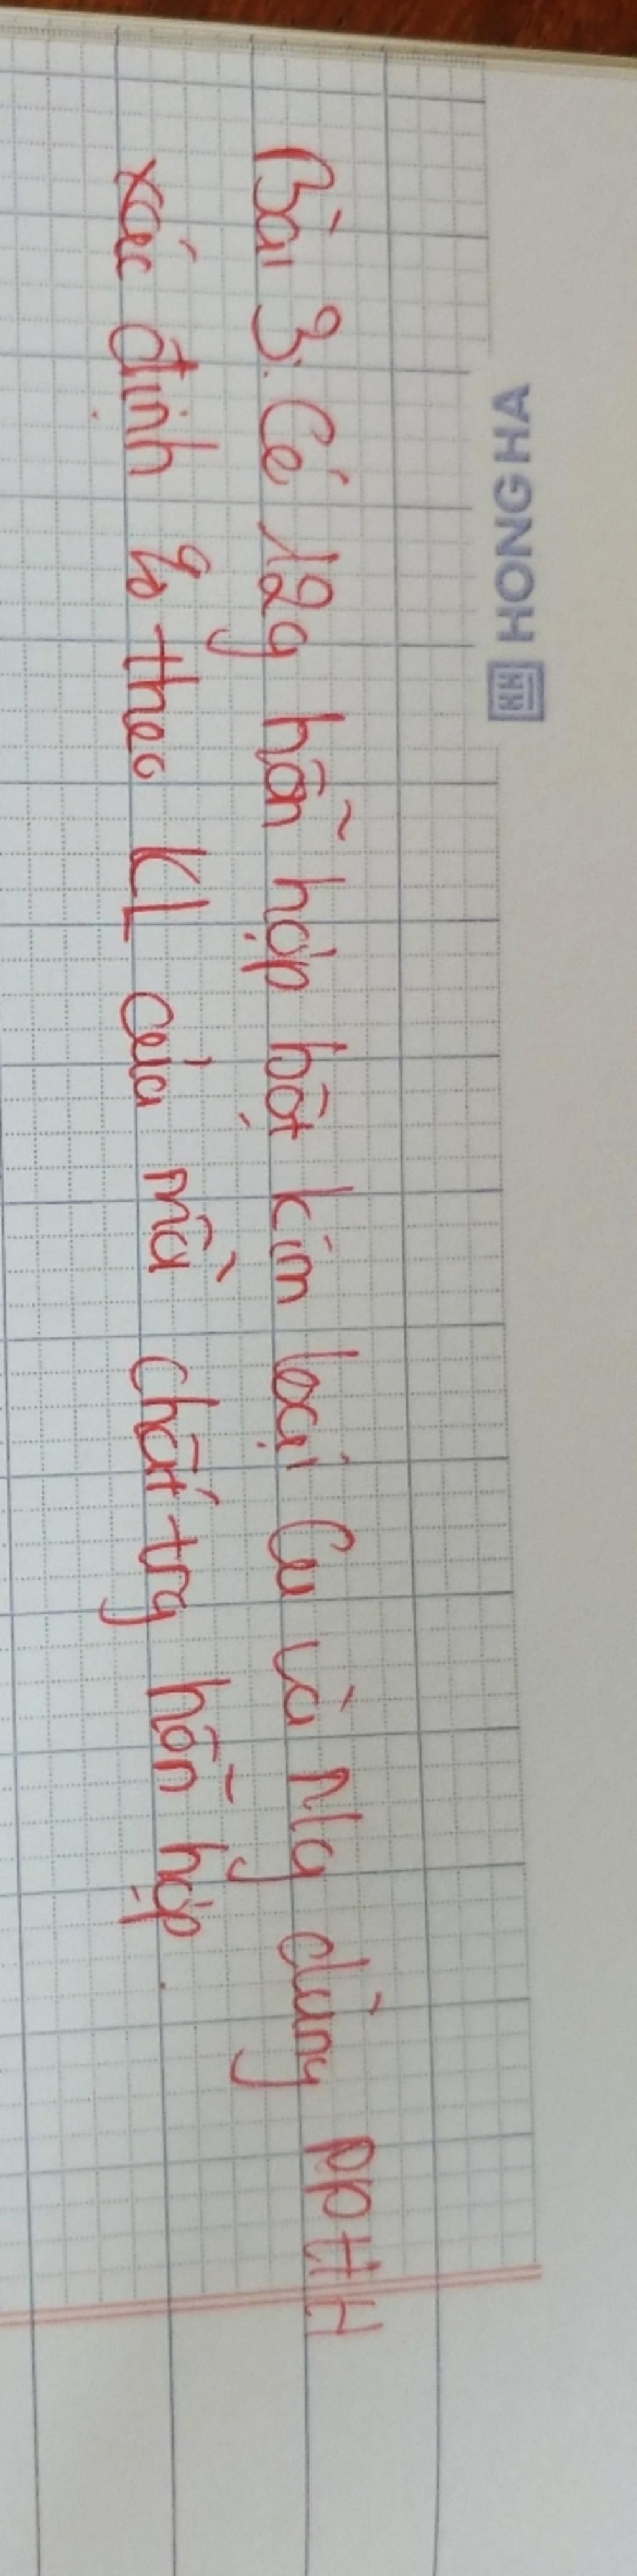 HONG HA
Bài 3. Có 12g hỗn hợp bột kim loại Cu và Mg dùng PPHH
xác định % theo KL của mỗi chất trg hỗn hợp.